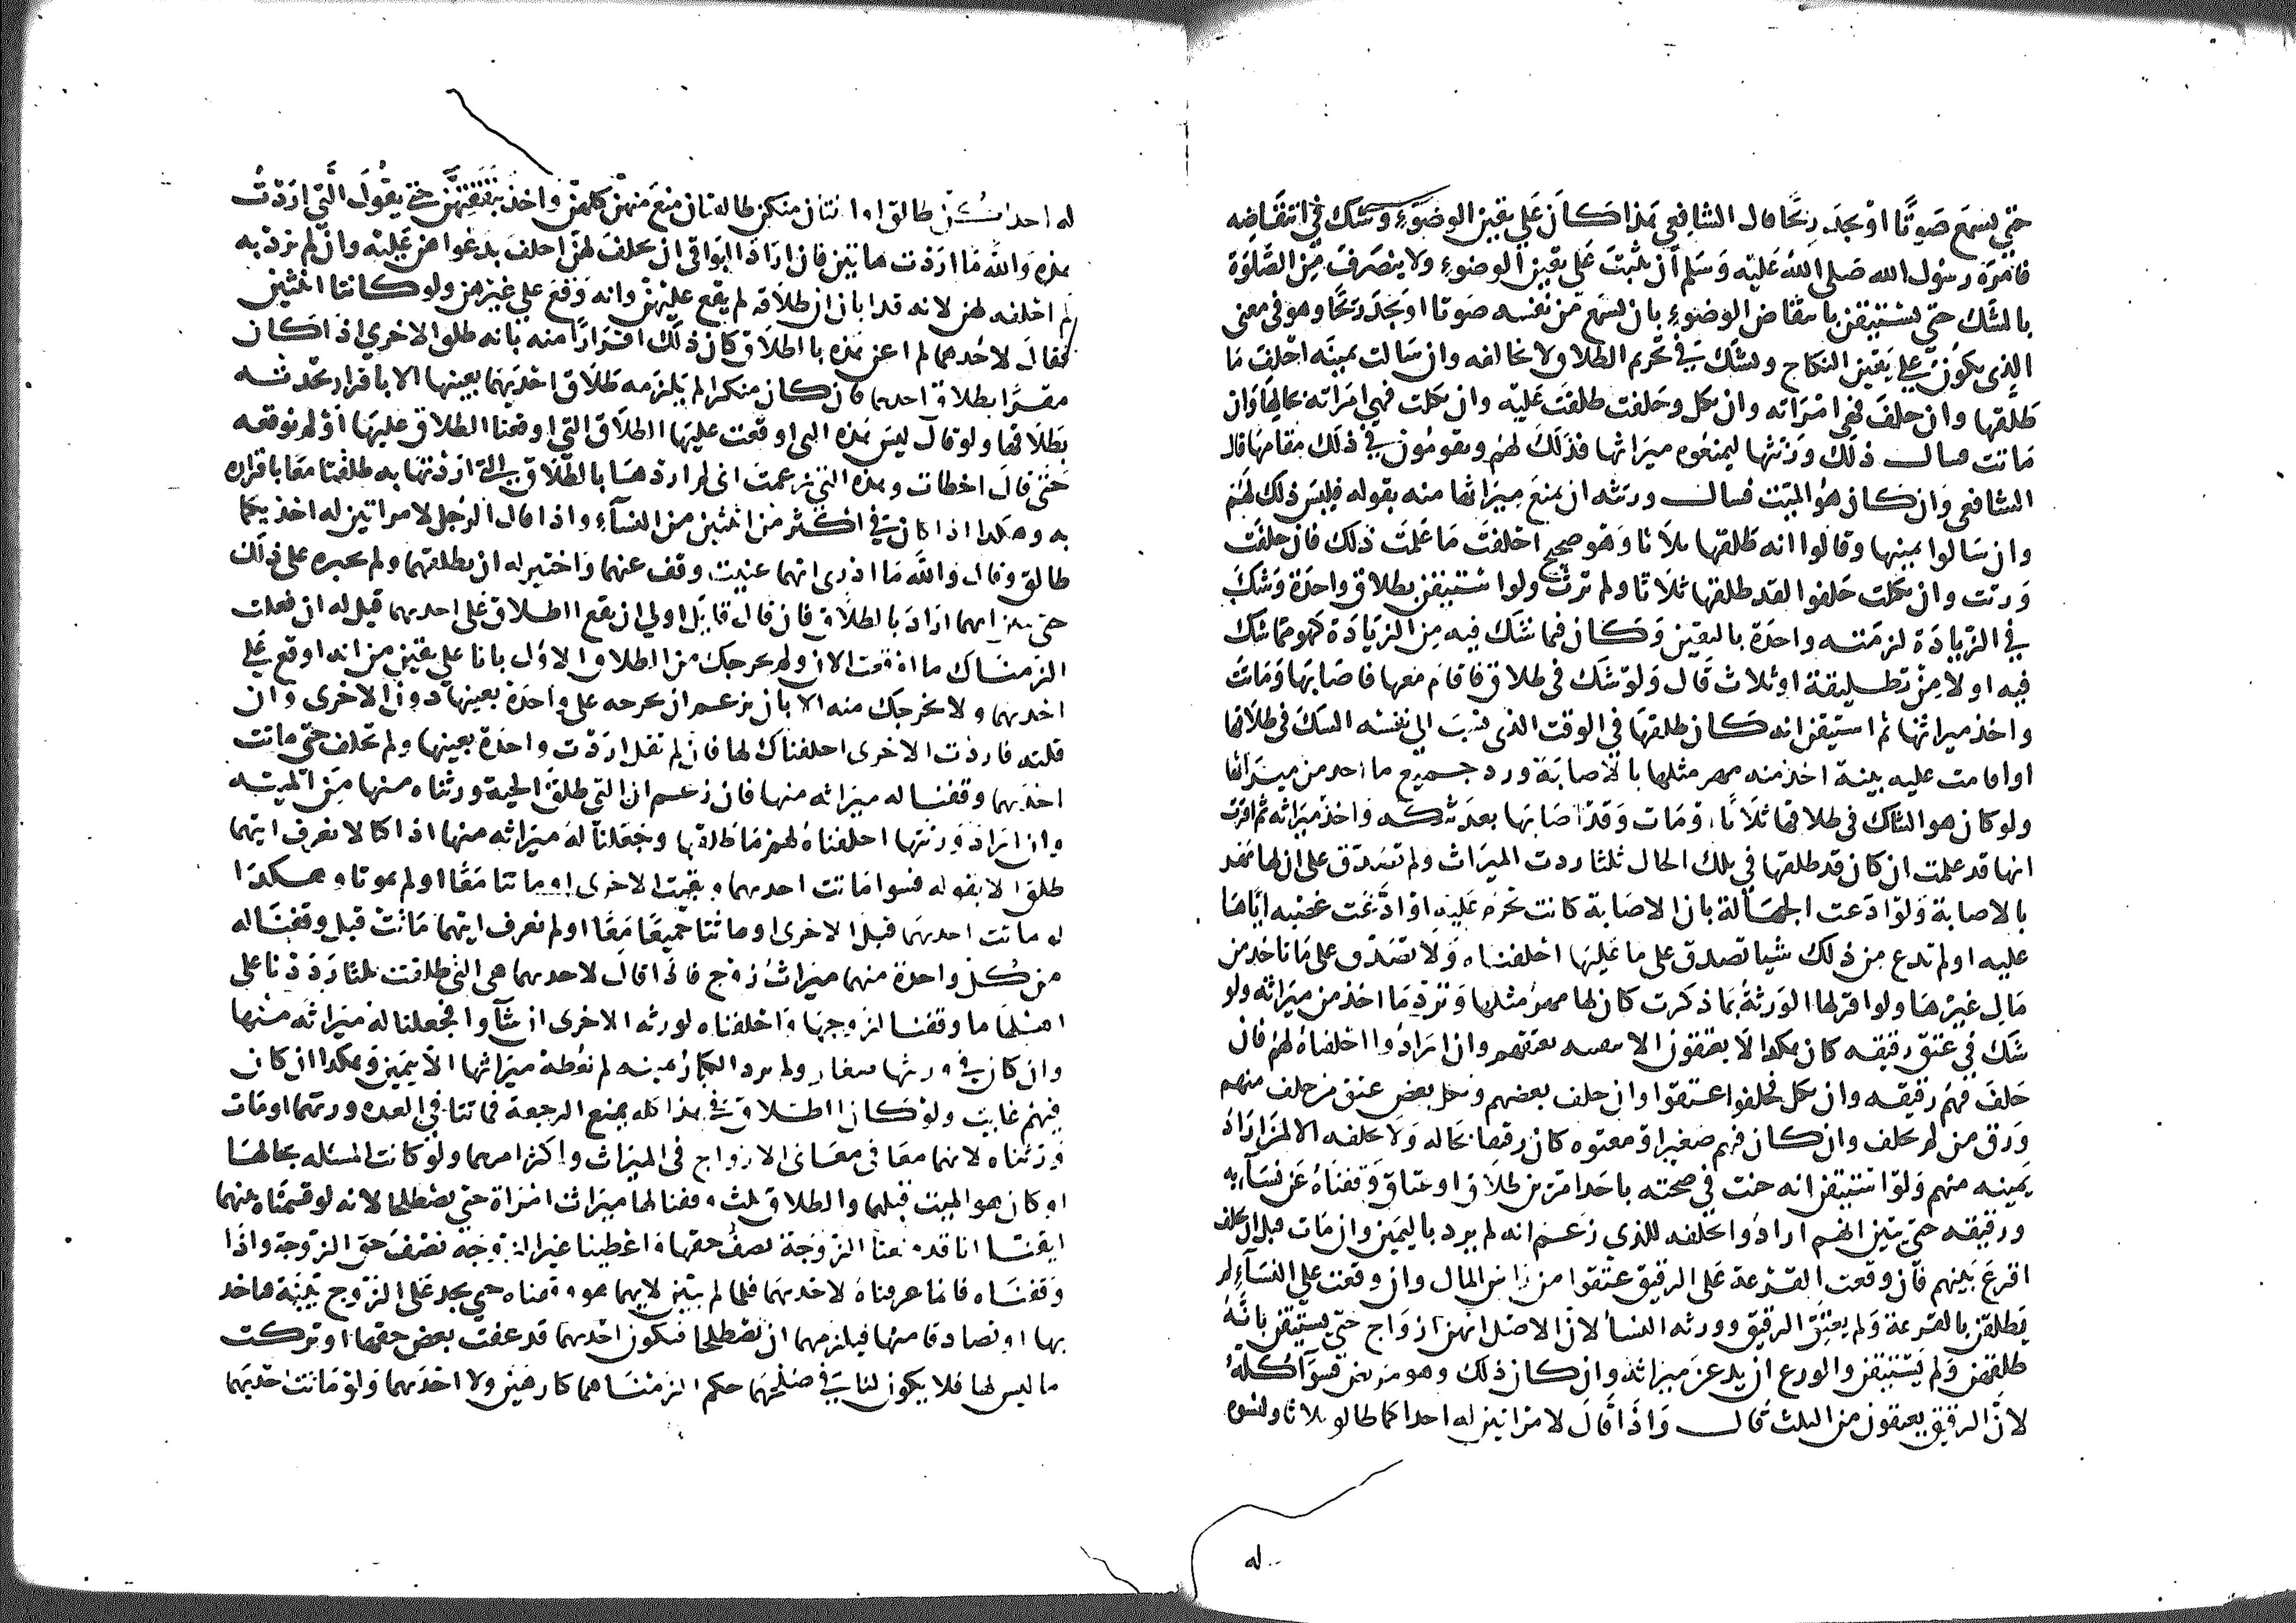 حتى يسمع صوتا او يجد ريحا قال الشافعي هذا كان على يقين الوضوء وشك في انتقاضه
فامره رسول الله صلى الله عليه وسلم ان يثبت على يقين الوضوء ولا ينصرف من الصلوة
بالشك حتى يستيقن بانتقاض الوضوء بان يسمع من نفسه صوتا او يجد ريحا وهو في معنى
الذي يكون على يقين النكاح ويشك في تحريم الطلاق ولا يخالفه وان سالت يمينه احلف ما
طلقها وان حلف فهي امراته وان نكل وحلفت طلقت عليه وان نكلت فهي امراته بحالها وان
ماتت فسال ذلك ورثتها ليمنعوه ميراثها فذلك لهم ويقومون في ذلك مقامها قال
الشافعي وان كان هو الميت فسال ورثته ان يمنع ميراثها منه بقوله فليس ذلك لهم
وان سالوا يمينها وقالوا انه طلقها ثلاثا وهو صحيح احلفت ما علمت ذلك فان حلفت
ورثت وان نكلت حلفوا لقد طلقها ثلاثا ولم ترث ولو استيقن بطلاق واحدة وشك
في الزيادة لزمته واحدة باليقين وكان فيما شك فيه من الزيادة كهو فيما شك
فيه اولا من تطليقة او ثلاث قال ولو شك في طلاق فاقام معها فاصابها وماتت
واخذ ميراثها ثم استيقن انه كان طلقها في الوقت الذي نسب الى نفسه الشك في طلاقها
او اقامت عليه بينة اخذ منه مهر مثلها بالاصابة ورد جميع ما اخذ من ميراثها
ولو كان هو الشاك في طلاقها ثلاثا ومات وقد اصابها بعد شكه واخذت ميراثه ثم اقرت
انها قد علمت ان كان قد طلقها في تلك الحال ثلثا ردت الميراث ولم تصدق على ان لها مهر
بالاصابة ولو ادعت الجهالة بان الاصابة كانت تحرم عليه او ادعت غصبه اياها
عليه او لم تدع من ذلك شيا تصدق على ما عليها احلفناه ولا تصدق على ما تاخذ من
مال غيرها ولو اقر لها الورثة بما ذكرت كان لها مهر مثلها وترد ما اخذ من ميراثه ولو
شك في عتق رقيقه كان هكذا لا يعتقون الا بعتقهم وان ارادوا احلفناه لهم فان
حلف فهم رقيقه وان نكل فحلفوا عتقوا وان حلف بعضهم ونكل بعض عتق من حلف منهم
ورق من لم يحلف وان كان فيهم صغير او معتوه كان رقيقا بحاله ولا نحلفه الا لمن اراد
يمينه منهم ولو استيقن انه حنث في صحته باحد امرين طلاق او عتاق وقفناه عن نسآيه
ورقيقه حتى يبين ايهم ارادوا نحلفه للذي زعم انه لم يرد باليمين وان مات قبل ان يحلف
اقرع بينهم فان وقعت القرعة على الرقيق عتقوا من راس المال وان وقعت على النسآء لم
يطلقن بالقرعة ولم يعتق الرقيق وورثه النسا لان الاصل انهن ازواج حتى يستيقن بانه
طلقهن ولم يستيقن والورع ان يدعن ميراثه وان كان ذلك وهو مريض فسوآ كله
لان الرقيق يعتقون من الثلث قال واذا قال لامراتين له احداكما طالق ثلاثا ونسوة
له
له احداكن طالق او اثنتان منكن طالقتان منع منهن كلهن واخذ بنفقتهن حتى يقول التي اردت
هذه والله ما اردت هاتين فان اراد البواقي ان يحلف لهن احلف بدعواهن عليه وان لم يردن به
لم احلفه لهن لانه قد ابان ان طلاقه لم يقع عليهن وانه وقع على غيرهن ولو كانتا اثنتين
فقال لاحدهما لم اعن هذه بالطلاق كان ذلك اقرارا منه بانه طلق الاخرى اذا كان
مقرا بطلاق احدهما فان كان منكرا لم يلزمه طلاق احديهما بعينها الا باقرار يحدثه
بطلاقها ولو قال ليس هذه التي اوقعت عليها الطلاق التي اوقعنا الطلاق عليها او لم نوقعه
حتى قال اخطات وهذه التي زعمت اني لم اردها بالطلاق التي اردتها به طلقتا معا باقراره
به وهكذا اذا كان في اكثر من اثنتين من النسآء واذا قال الرجل لامراتين له احديكما
طالق وقال والله ما ادري ايتهما عنيت وقف عنهما واختير له ان يطلقهما ولم نجبره على ذلك
حتى يبين ايهما اراد بالطلاق فان قال قايل اولي ان يقع الطلاق على احديهما قيل له ان فعلت
الزمناك ما اوقعت الان ولم نخرجك من الطلاق الاول بانا على يقين من انه اوقع على
احديهما ولا نخرجك منه الا بان تزعم ان نخرجه على واحدة بعينها دون الاخرى وان
قلته فاردت الاخرى احلفناك لها فان لم تقل اردت واحدة بعينها ولم تحلف حتى ماتت
احديهما وقفنا له ميراثه منها فان زعم ان التي طلق الحية ورثناه منها من الميتة
وان اراد ورثتها احلفناه لهم ما طلقها وجعلنا له ميراثه منها اذا كنا لا نعرف ايتهما
طلق الا بقوله فسوا ماتت احديهما وبقيت الاخرى او ماتتا معا او لم يموتا وهكذا
لو ماتت احديهما قبل الاخرى او ماتتا جميعا معا او لم نعرف ايتهما ماتت قبل وقفنا له
من كل واحدة منهما ميراث زوج فاذا قال لاحديهما هي التي طلقت ثلثا رددنا على
اهلها ما وقفنا لزوجها واحلفناه لورثة الاخرى ان شآوا فجعلنا له ميراثه منها
وان كان في ورثتها صغار ولم يرد الكبار يمينه لم نعطه ميراثها الا بيمين وهكذا ان كان
فيهم غايب ولو كان الطلاق في هذا كله يملك الرجعة فماتتا في العدة ورثهما او مات
ورثتاه لانهما معا في معاني الازواج في الميراث واكثر امرهما ولو كانت المسئله بحالها
وكان هو الميت قبلهما والطلاق ثلث وقفنا لهما ميراث امراة حتى يصطلحا لانه لو قسمناه بينهما
ايقنا انا قد منعنا الزوجة نصف حقها واعطينا غير الزوجة نصف حق الزوجة واذا
وقفناه فانما عرفناه لاحديهما فلما لم يتبين لايهما هو وقفناه حتى يجد على الزوج بينة فاخذ
بها او تصادقا منها فيلزمهما ان يصطلحا فيكون احديهما قد عفت بعض حقها او تركت
ما ليس لها فلا يكون لنا في صلحهما حكم الزمناهما كارهتين ولا احديهما ولو ماتت احديهما